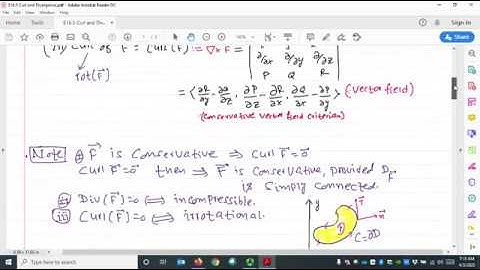 §16.5 Curl and Divergence.pdf - Adobe Acrobat Reader DC
File Edit View Window Help
Home Tools
Sign In
Curl of F = Curl(F) := ∇ x F = | ∂/∂x ∂/∂y ∂/∂z
P Q R |
rot(F)
= < ∂R/∂y - ∂Q/∂z, ∂P/∂z - ∂R/∂x, ∂Q/∂x - ∂P/∂y > (vector field)
(Conservative vector field criterion)
Note (i) F is Conservative ⇒ Curl F = 0
Curl F = 0 then ⇒ F is Conservative, provided D_F
is Simply connected.
(ii) Div(F) = 0 ⇔ incompressible.
(iii) Curl(F) = 0 ⇔ irrotational.
y
D
n
C = ∂D
Type here to search
4/3/2020